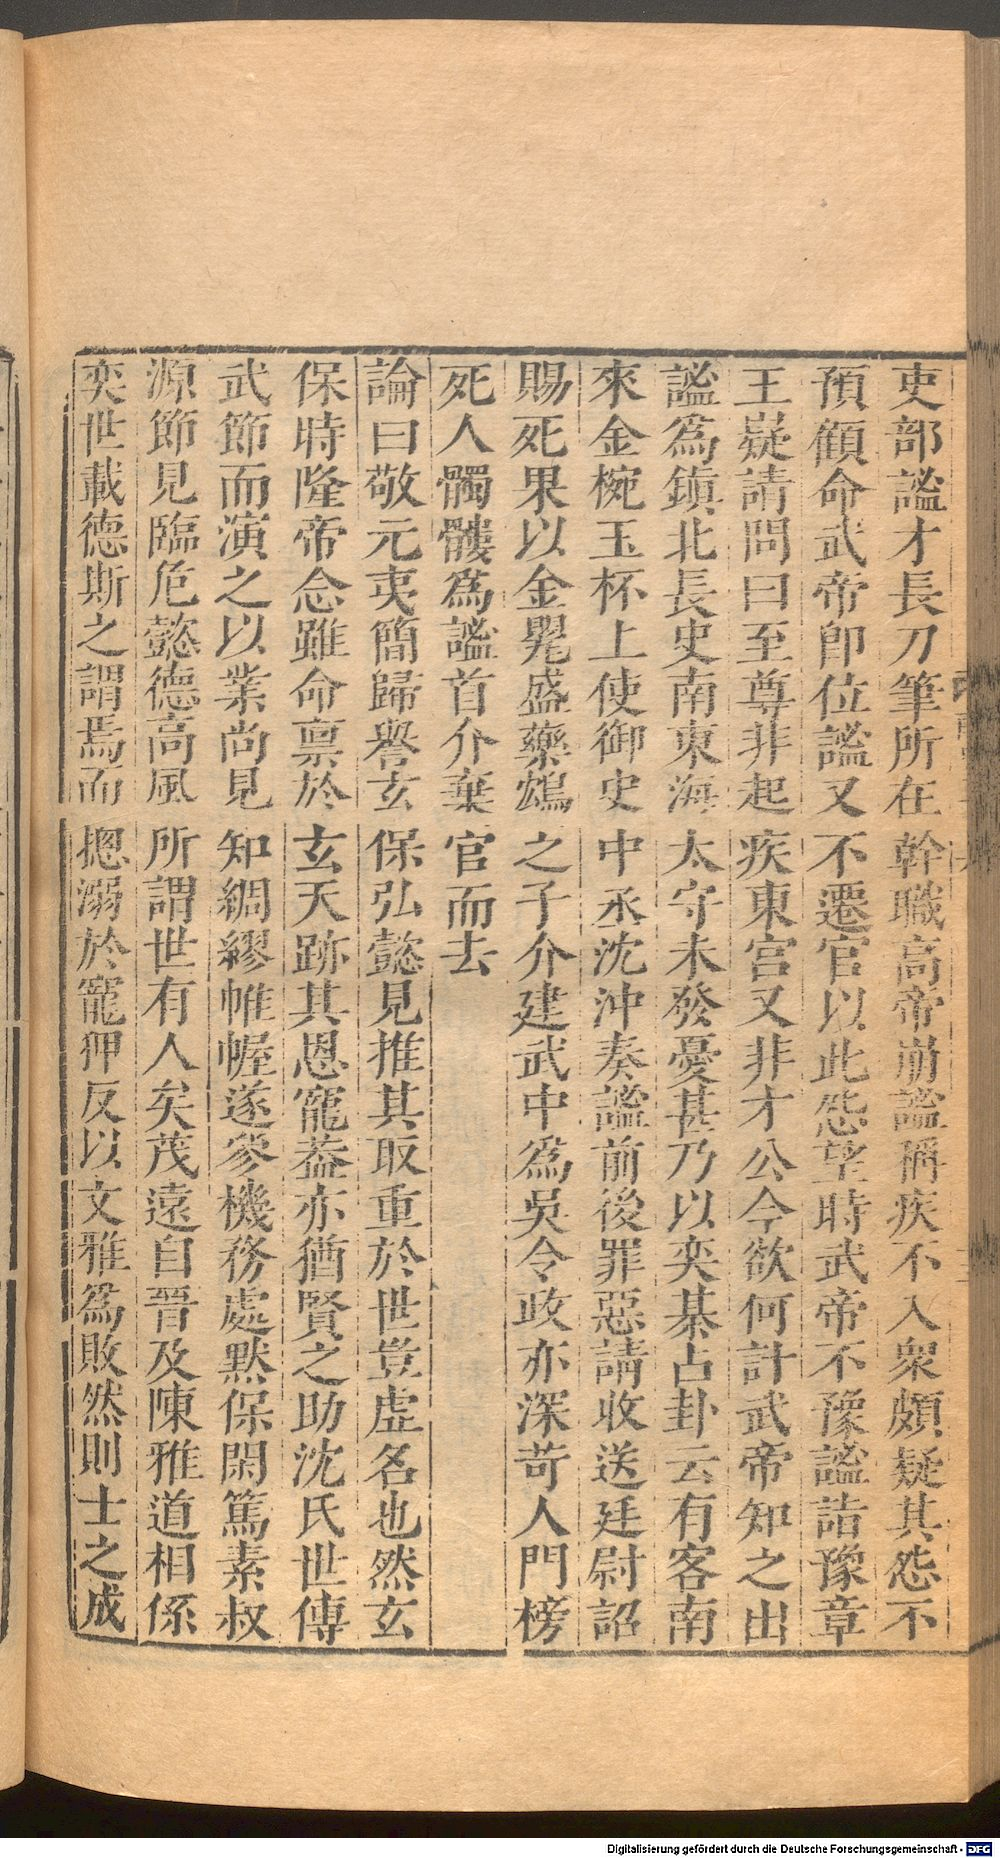 吏部謐才長刀筆所在幹職高帝崩謐稱疾不入衆頗疑其怨不
預顧命武帝即位謐又不遷官以此怨望時武帝不豫謐詣豫章
王嶷請問曰至尊非起疾東宮又非才公今欲何計武帝知之出
謐爲鎮北長史南東海太守未發憂甚乃以奕棊占卦云有客南
來金椀玉杯上使御史中丞沈沖奏謐前後罪惡請收送廷尉詔
賜死果以金罌盛藥鴆之子介建武中爲吳令政亦深苛人門榜
死人髑髏爲謐首介棄官而去
論曰敬元夷簡歸譽玄保弘懿見推其取重於世豈虛名也然玄
保時隆帝念雖命稟於玄天跡其恩寵葢亦猶賢之助沈氏世傳
武節而演之以業尚見知綢繆帷幄遂參機務處默保閑篤素叔
源節見臨危懿德高風所謂世有人矣茂遠自晉及陳雅道相係
奕世載德斯之謂焉而摠溺於寵狎反以文雅爲敗然則士之成
Digitalisierung gefördert durch die Deutsche Forschungsgemeinschaft - DFG